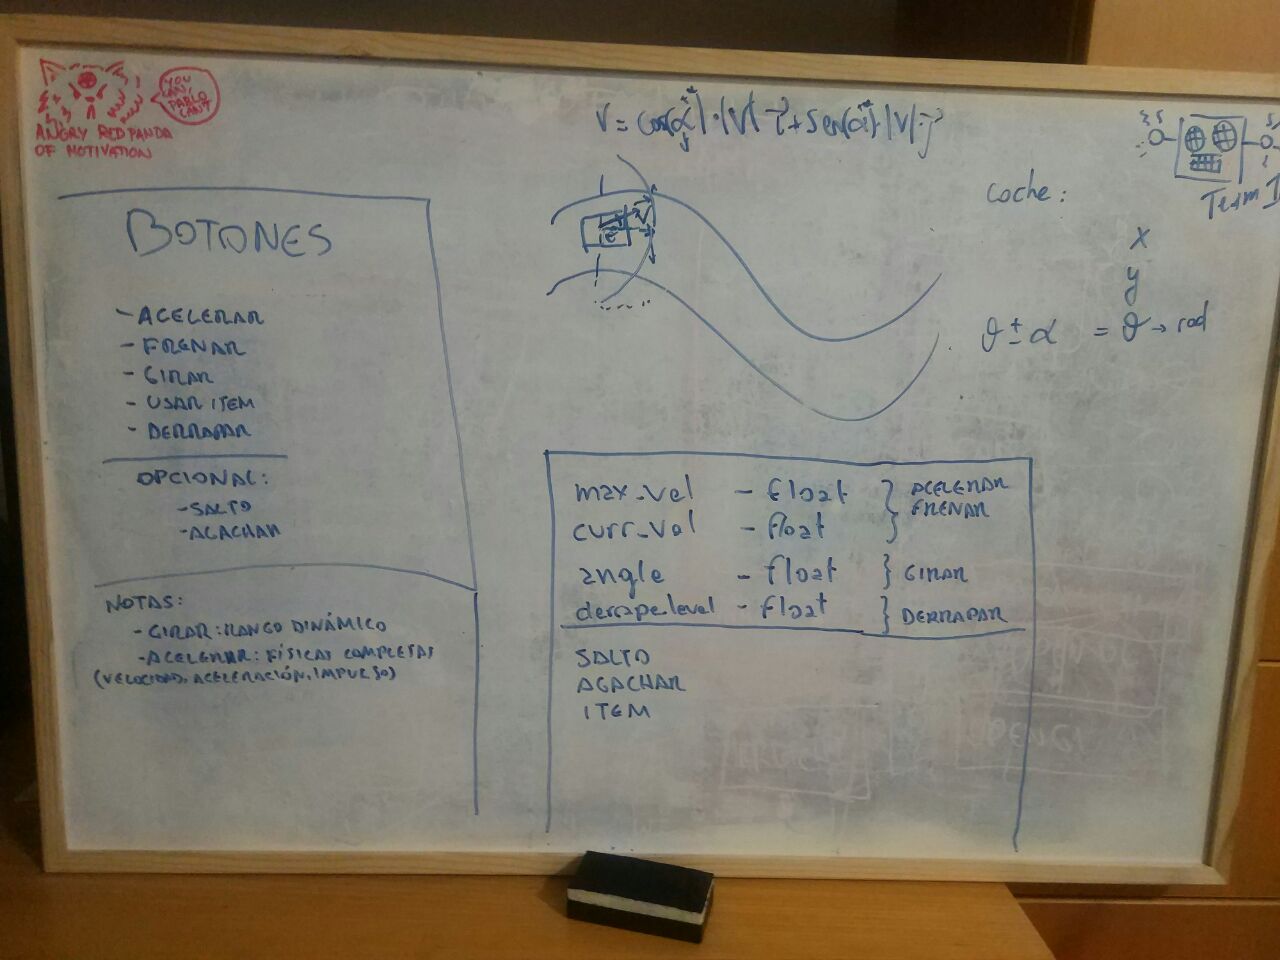 YOU
CAN,
PABLO
CAN'T
ANGRY RED PANDA
OF MOTIVATION
BOTONES
- ACELERAR
- FRENAR
- GIRAR
- USAR ITEM
- DERRAPAR
OPCIONAL:
- SALTO
- AGACHAR
NOTAS:
- GIRAR: RANGO DINÁMICO
- ACELERAR: FÍSICAS COMPLETAS
(VELOCIDAD, ACELERACIÓN, IMPULSO)
V
Coche:
x
y
θ ± α = θ → rad
max_vel - float } ACELERAR
FRENAR
curr_vel - float
angle - float } GIRAR
derrapelevel - float } DERRAPAR
SALTO
AGACHAR
ITEM